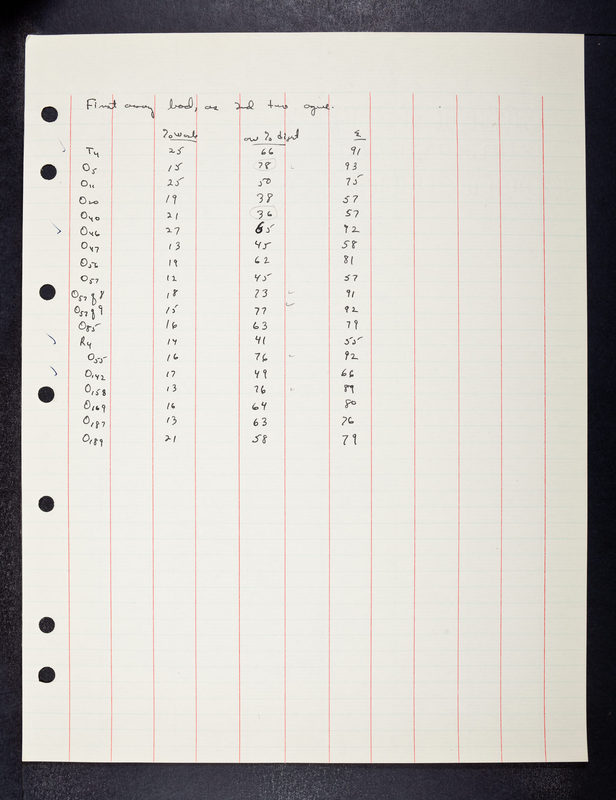 First assay bad, as 2nd two agree.
% wash ow % digest Σ
T4 25 66 91
O5 15 78 93
O11 25 50 75
O20 19 38 57
O40 21 36 57
O46 27 65 92
O47 13 45 58
O56 19 62 81
O57 12 45 57
O57g8 18 73 91
O57g9 15 77 92
O85 16 63 79
R4 14 41 55
O55 16 76 92
O142 17 49 66
O158 13 76 89
O169 16 64 80
O187 13 63 76
O189 21 58 79